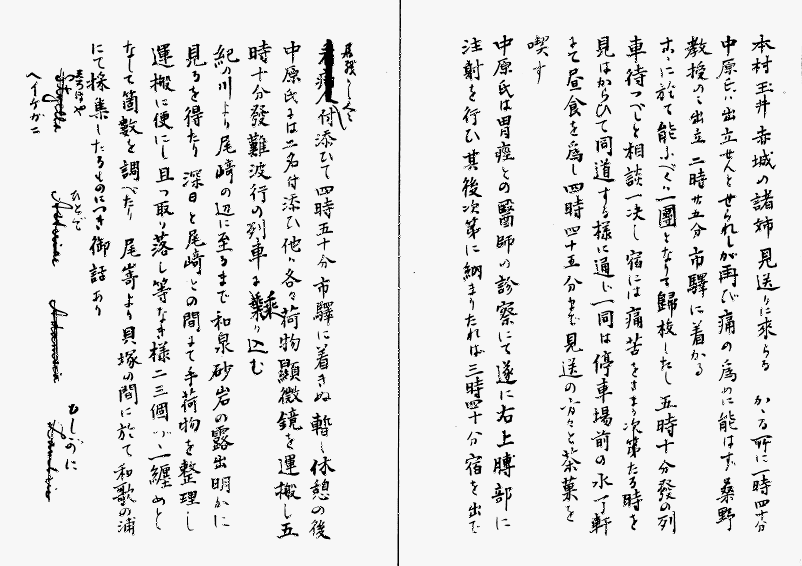 本村玉井赤城の諸姉見送りに来らる かゝる所に一時四十分
中原氏は出立せんとせられしが再び痛の為めに能はず桑野
教授のみ出立二時廿五分市驛に着かる
ホームに於て能ふべくは一團となりて歸校したし五時十分發の列
車待つべしと相談一決し宿には痛苦をまち次第たる時を
見はからひて同道する様に通じ一同は停車場前の氷丁軒
にて昼食を為し四時四十五分まで見送の方々と茶菓を
喫す
中原氏は胃痙との醫師の診察にて遂に右上膊部に
注射を行ひ其後次第に納まりたれば三時四十分宿を出で
居残りし人々
付添ひて四時五十分市驛に着きぬ 暫し休憩の後
中原氏には二名付添ひ他は各々荷物顯微鏡を運搬し五
時十分發難波行の列車に乘り込む
紀の川より尾﨑の辺に至るまで和泉砂岩の露出明かに
見るを得たり 深日と尾﨑との間にて手荷物を整理し
運搬に便にし且つ取り落し等なき様二三個づゝ一纏めと
なして箇數を調べたり 尾嵜より貝塚の間に於て和歌の浦
にて採集したるものにつき御話あり
ひとで
むしのに
ヘイケガニ